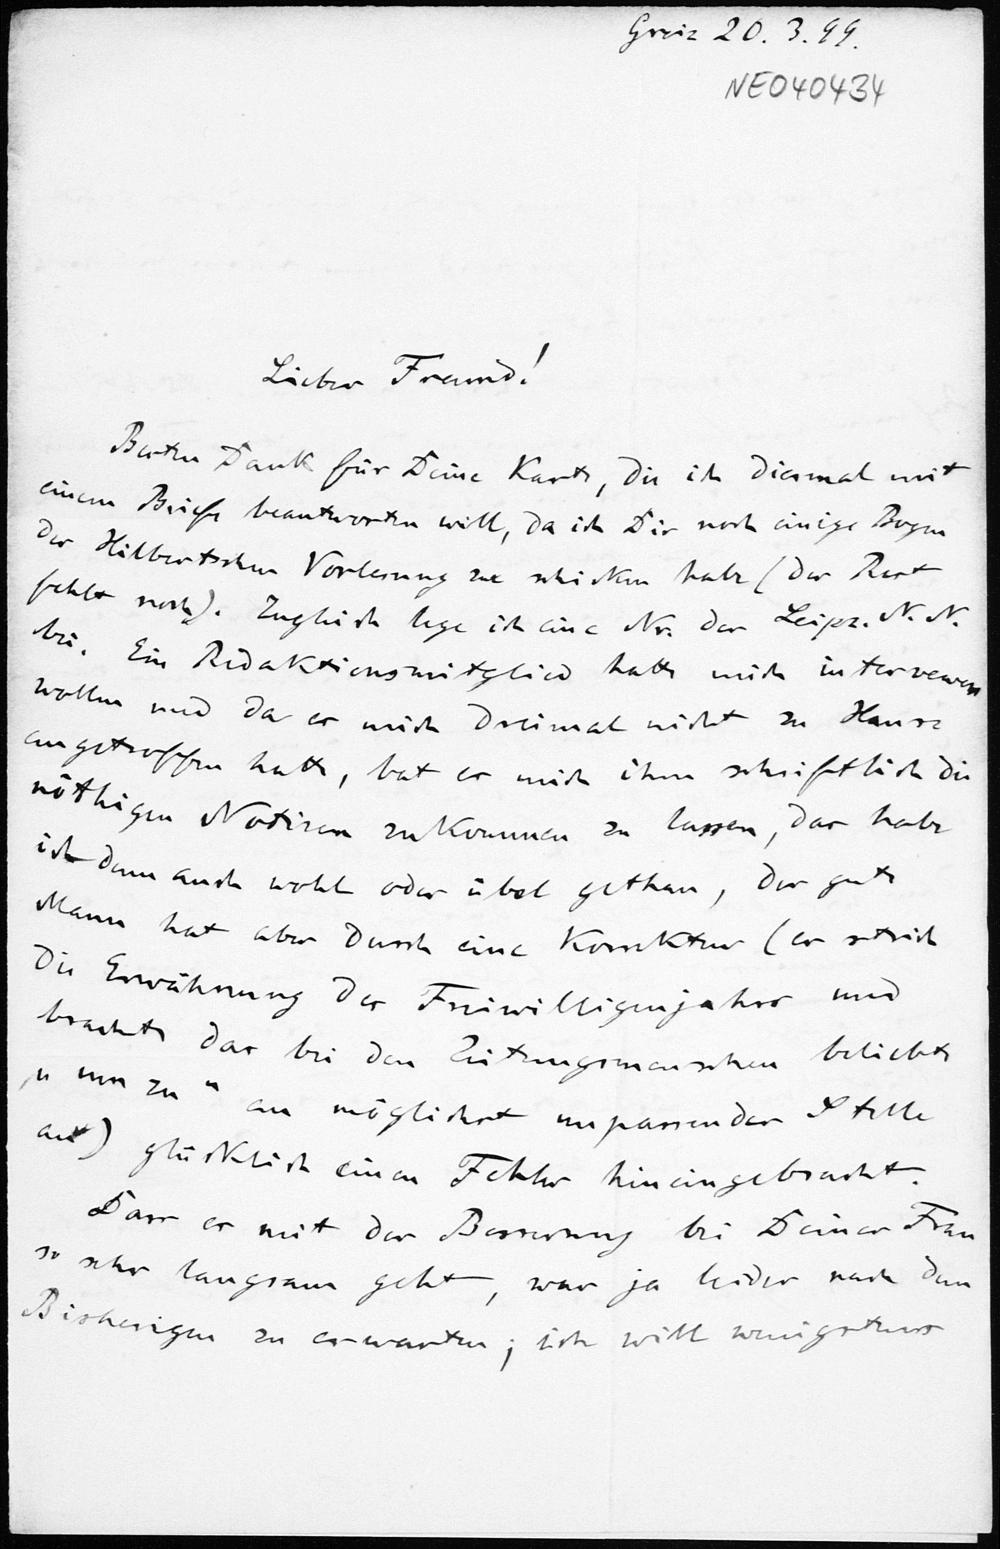 Greiz 20. 3. 99.
NE040434
Lieber Freund!
Besten Dank für Deine Karte, die ich diesmal mit
einem Briefe beantworten will, da ich Dir noch einige Bogen
der Hilbertschen Vorlesung zu schicken habe (der Rest
fehlt noch). Zugleich lege ich eine Nr. der Leipz. N. N.
bei. Ein Redaktionsmitglied hatte mich intervewen
wollen und da er mich dreimal nicht zu Hause
angetroffen hatte, bat er mich ihm schriftlich die
nöthigen Notizen zukommen zu lassen, das habe
ich denn auch wohl oder übel gethan, der gute
Mann hat aber durch eine Korrektur (er strich
die Erwähnung des Freiwilligenjahrs und
brachte das bei den Zeitungsmenschen beliebte
„um zu" an möglichst unpassender Stelle
an) glücklich einen Fehler hineingebracht.
Dass es mit der Besserung bei Deiner Frau
so sehr langsam geht, war ja leider nach dem
Bisherigen zu erwarten; ich will wenigstens